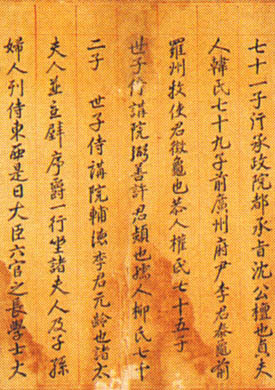 七十一子行承政院都承旨沈公檀也貞夫
人韓氏七十九子前廣州府尹李君泰龜前
羅州牧使君徵龜也恭人權氏七十五子
世子侍講院弼善許君頲也孺人柳氏七十
二子 世子侍講院輔德李君元齡也諸太
夫人並立壁序爵一行坐諸夫人及子孫
婦人列侍東西是日大臣六官之長學士大